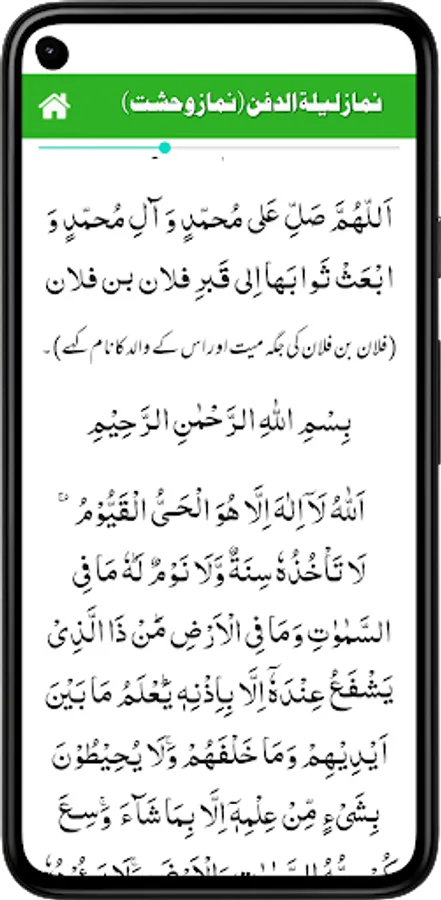 نماز لیلۃ الدفن (نماز وحشت)
اَللّٰهُمَّ صَلِّ عَلٰی مُحَمَّدٍ وَ آلِ مُحَمَّدٍ وَ
ابْعَثْ ثَوَابَهَا اِلٰی قَبْرِ فلان بن فلان
(فلان بن فلان کی جگہ میت اور اس کے والد کا نام کہے)۔
بِسْمِ اللهِ الرَّحْمٰنِ الرَّحِيْمِ
اَللهُ لَآ اِلٰهَ اِلَّا هُوَ الْحَيُّ الْقَيُّوْمُ
لَا تَاْخُذُهٗ سِنَةٌ وَّلَا نَوْمٌ لَهٗ مَا فِي
السَّمٰوٰتِ وَمَا فِي الْاَرْضِ مَنْ ذَا الَّذِيْ
يَشْفَعُ عِنْدَهٗٓ اِلَّا بِاِذْنِهٖ يَعْلَمُ مَا بَيْنَ
اَيْدِيْهِمْ وَمَا خَلْفَهُمْ وَلَا يُحِيْطُوْنَ
بِشَيْءٍ مِّنْ عِلْمِهٖٓ اِلَّا بِمَا شَآءَ وَسِعَ